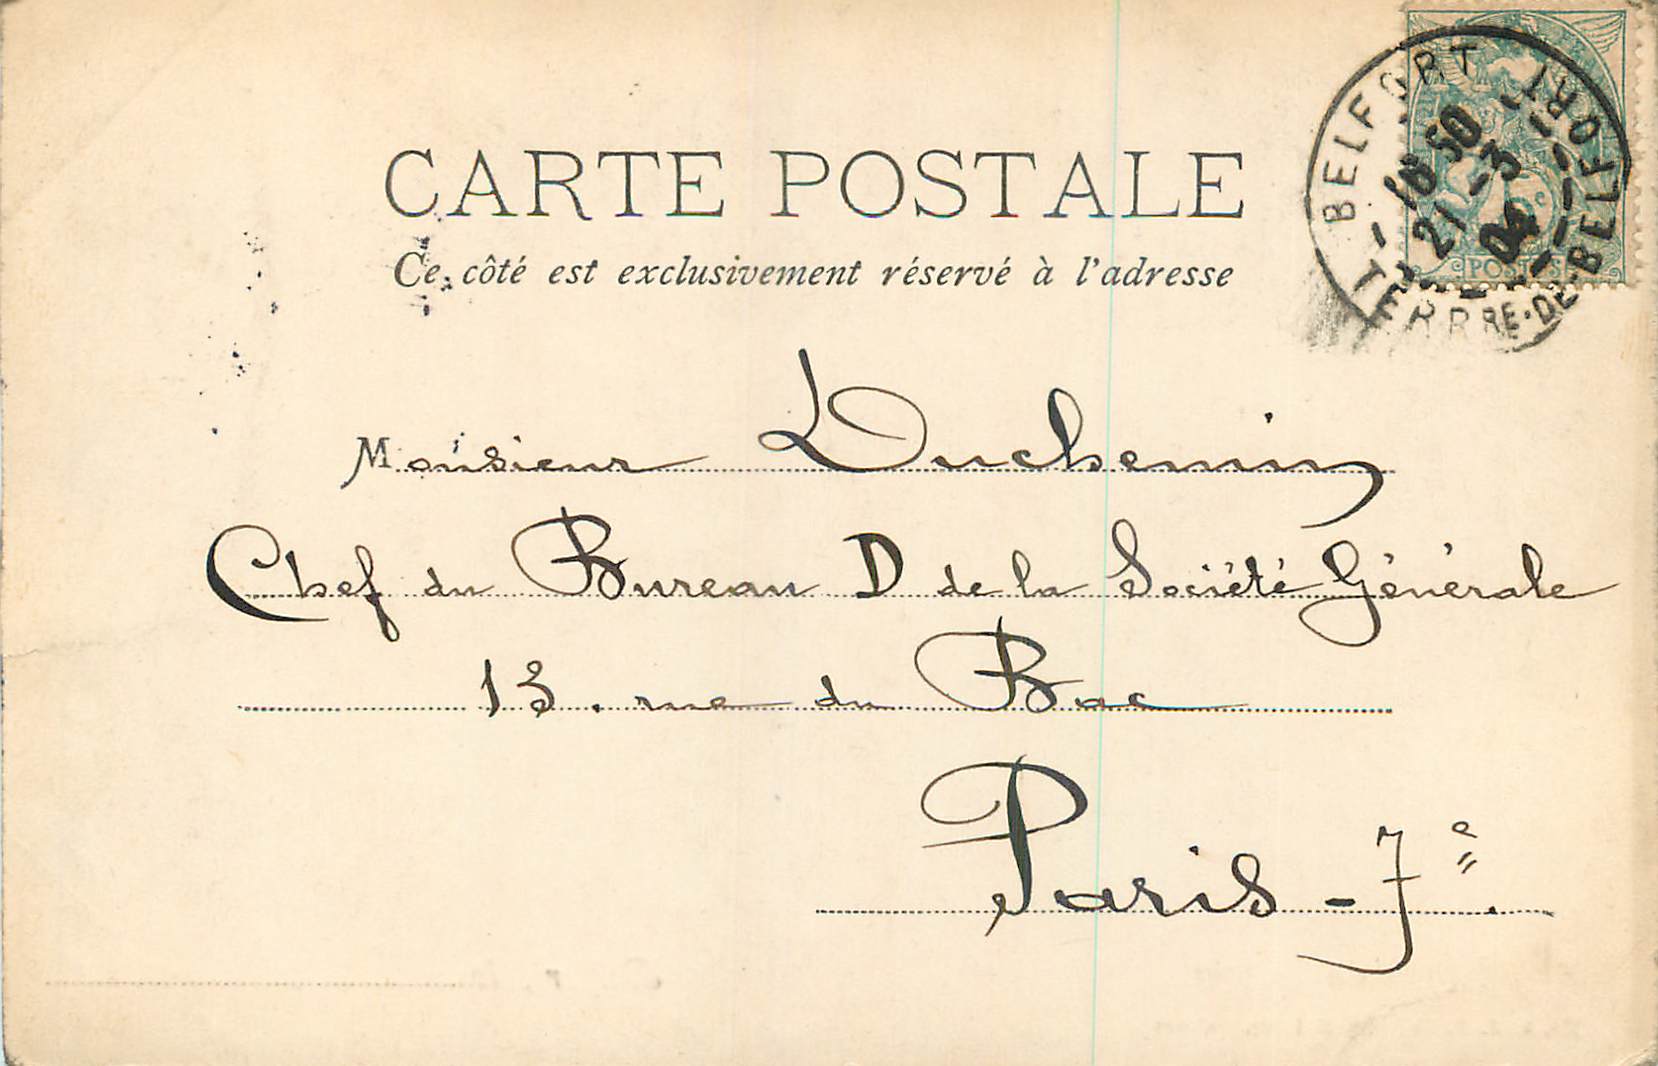 CARTE POSTALE
Ce côté est exclusivement réservé à l'adresse
BELFORT BELFORT
18 50
21 -3
04
TERRE-DE-BELFORT
5c
POSTES
Monsieur Duchemin
Chef du Bureau D de la Société Générale
13. rue du Bac
Paris - 7e.